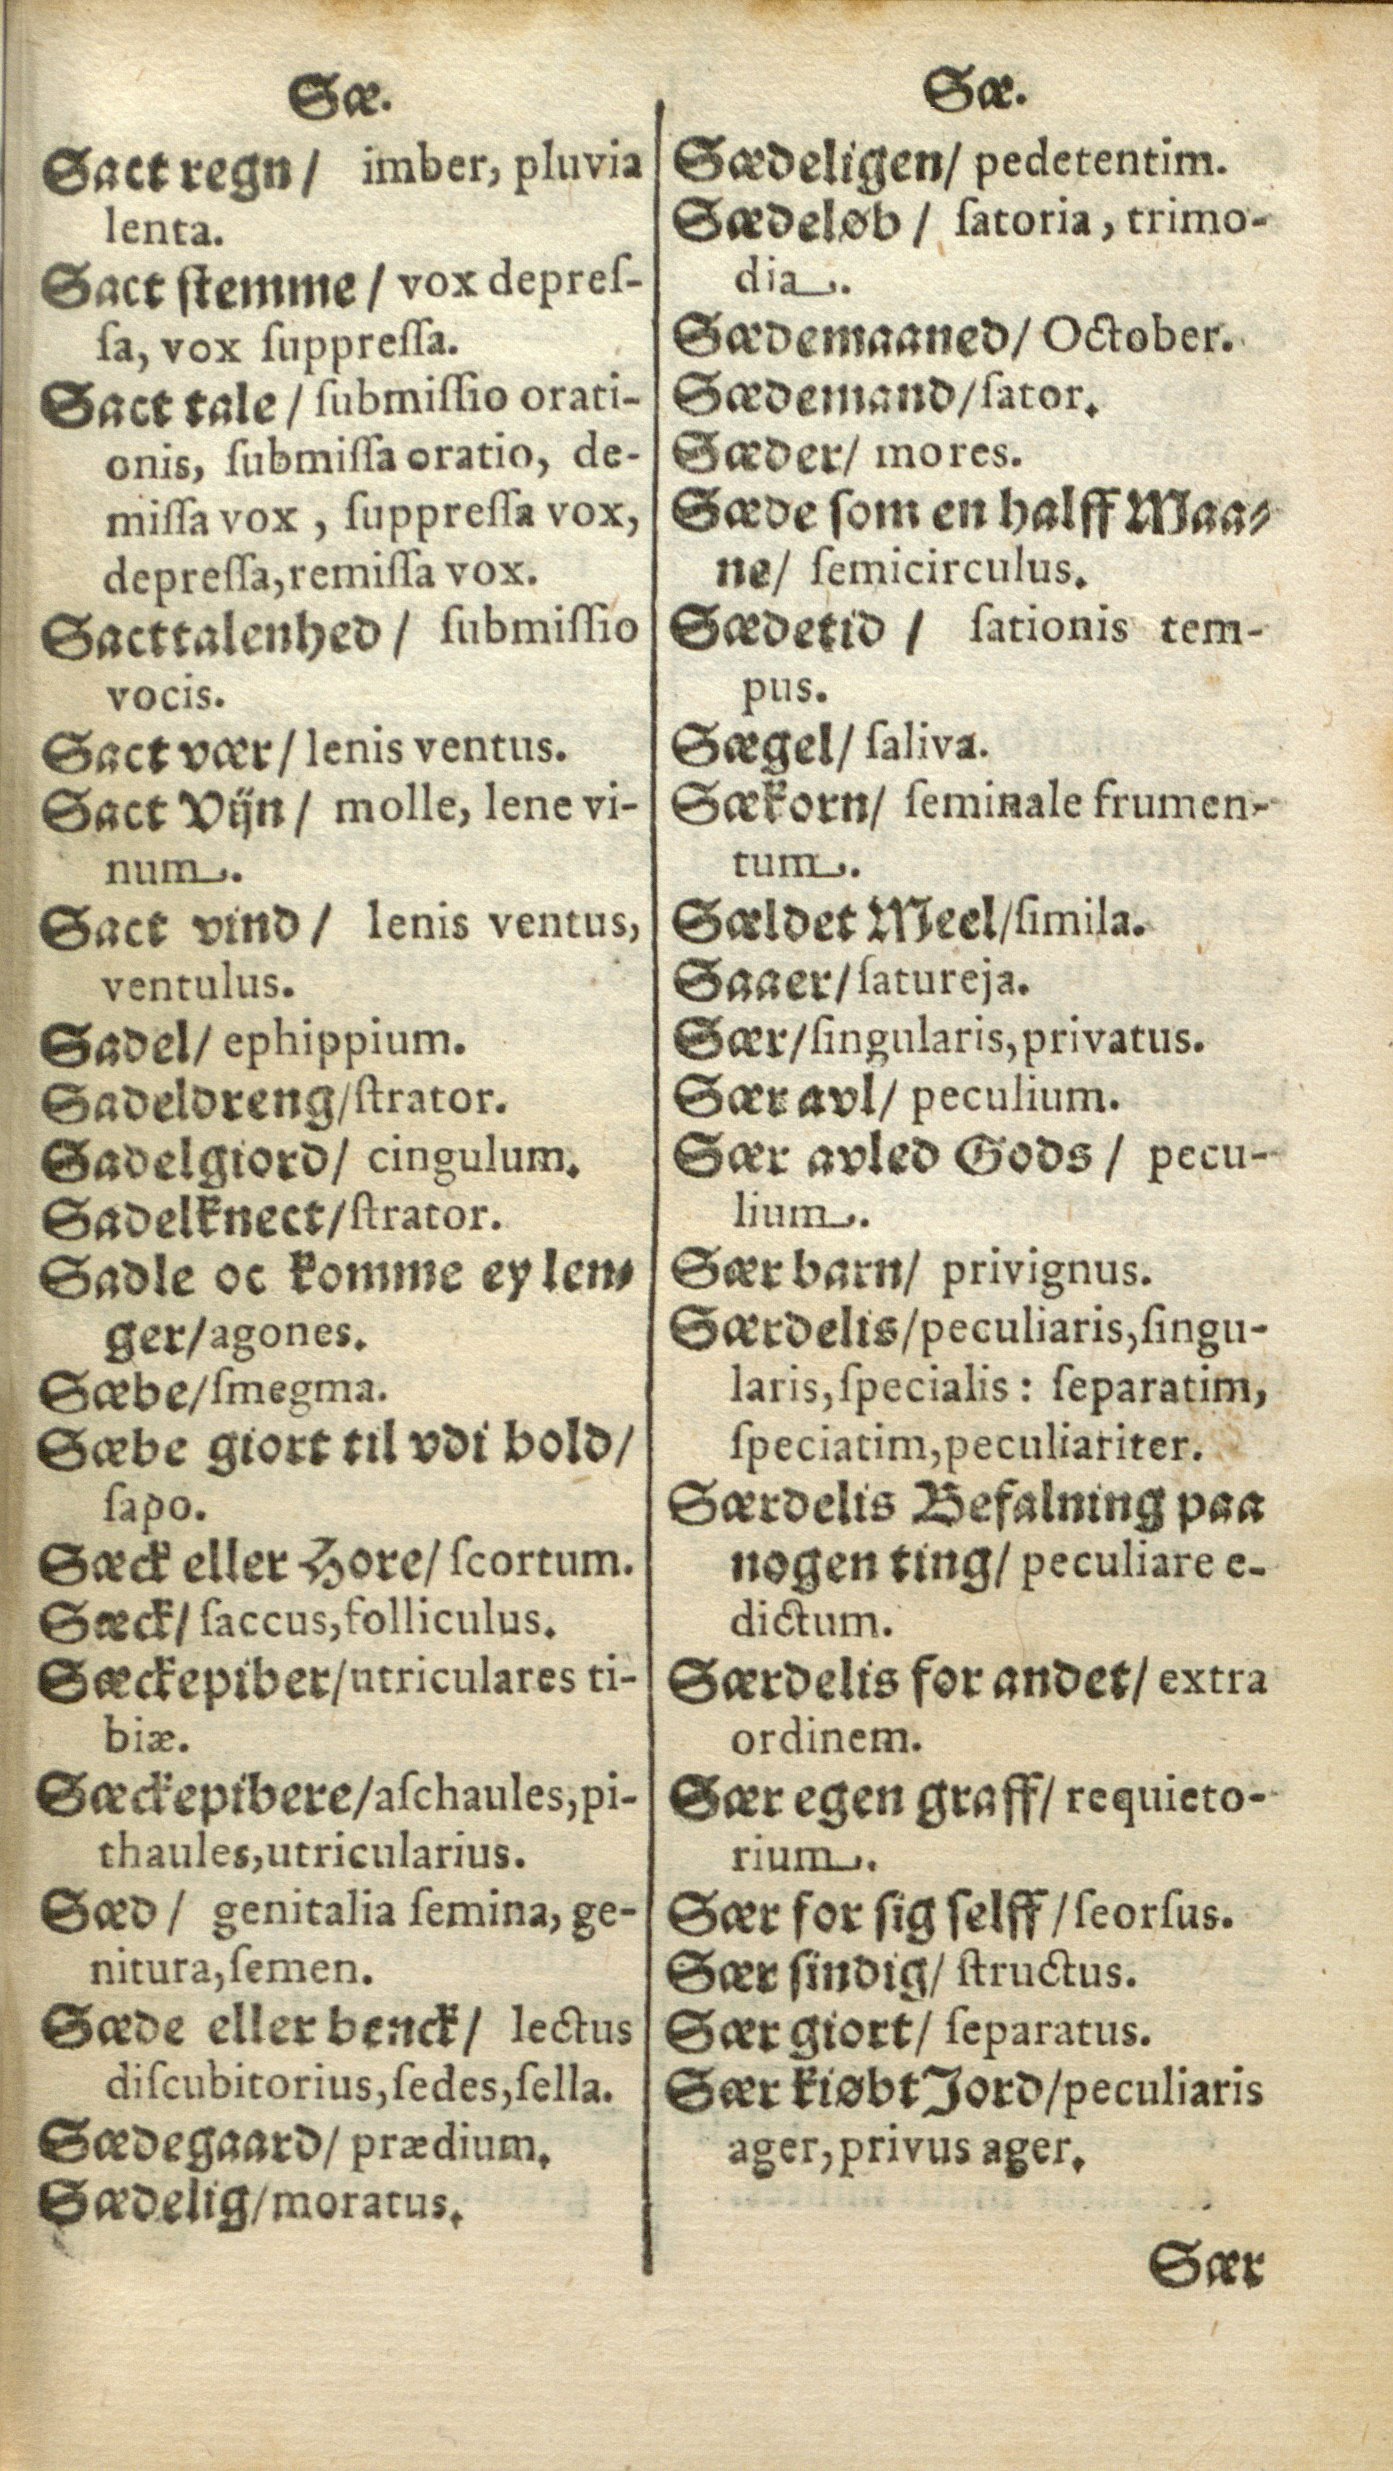 Sæ.
Sact regn/ imber, pluvia
lenta.
Sact ſtemme/ vox depreſ-
ſa, vox ſuppreſſa.
Sact tale/ ſubmiſſio orati-
onis, ſubmiſſa oratio, de-
miſſa vox, ſuppreſſa vox,
depreſſa, remiſſa vox.
Sacttalenhed/ ſubmiſſio
vocis.
Sact vær/ lenis ventus.
Sact Vijn/ molle, lene vi-
num.
Sact vind/ lenis ventus,
ventulus.
Sadel/ ephippium.
Sadeldreng/ ſtrator.
Sadelgiord/ cingulum.
Sadelknect/ ſtrator.
Sadle oc komme ey len-
ger/ agones.
Sæbe/ ſmegma.
Sæbe giort til vdi bold/
ſapo.
Sæck eller Hore/ ſcortum.
Sæck/ ſaccus, folliculus.
Sæckepiber/ utriculares ti-
biæ.
Sæckepibere/ aſchaules, pi-
thaules, utricularius.
Sæd/ genitalia ſemina, ge-
nitura, ſemen.
Sæde eller benck/ lectus
diſcubitorius, ſedes, ſella.
Sædegaard/ prædium.
Sædelig/ moratus.
Sæ.
Sædeligen/ pedetentim.
Sædeløb/ ſatoria, trimo-
dia.
Sædemaaned/ October.
Sædemand/ ſator.
Sæder/ mores.
Sæde ſom en halff Maa-
ne/ ſemicirculus.
Sædetid/ ſationis tem-
pus.
Sægel/ ſaliva.
Sækorn/ ſeminale frumen-
tum.
Sældet Meel/ ſimila.
Saaer/ ſatureja.
Sær/ ſingularis, privatus.
Sær avl/ peculium.
Sær avled Gods/ pecu-
lium.
Sær barn/ privignus.
Særdelis/ peculiaris, ſingu-
laris, ſpecialis: ſeparatim,
ſpeciatim, peculiariter.
Særdelis Befalning paa
nogen ting/ peculiare e-
dictum.
Særdelis for andet/ extra
ordinem.
Sær egen graff/ requieto-
rium.
Sær for ſig ſelff/ ſeorſus.
Sær ſindig/ ſtructus.
Sær giort/ ſeparatus.
Sær kiøbt Jord/ peculiaris
ager, privus ager.
Sær